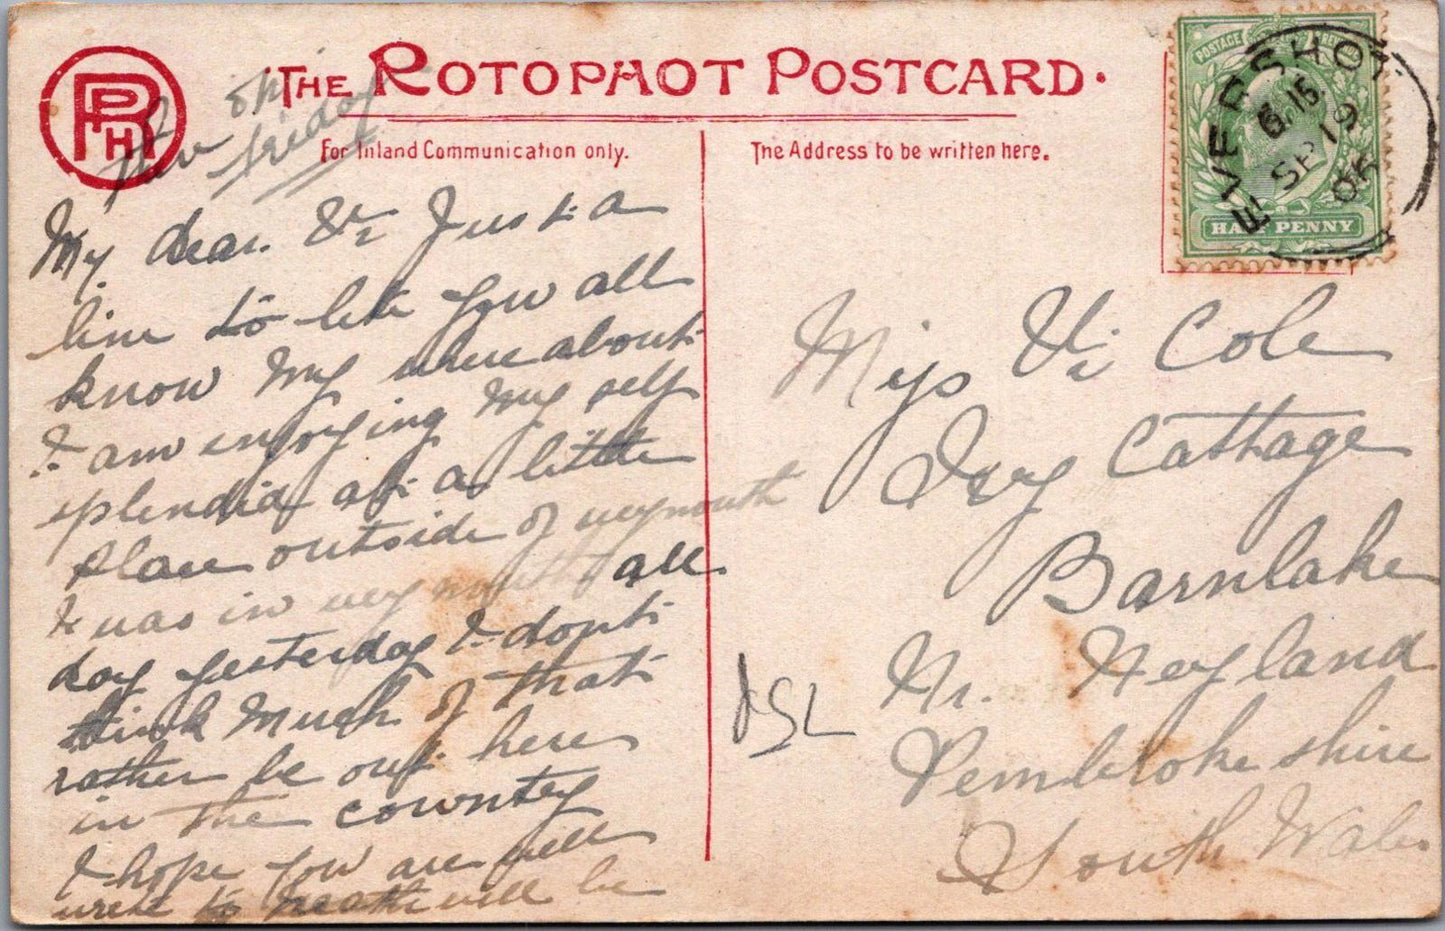 THE ROTOPHOT POSTCARD.
RPH
For Inland Communication only.
The Address to be written here.
friday
POSTAGE REVENUE
HALF PENNY
EVERSHOT
6.15
SP 19
06
My dear Vi Just a
line to let you all
know my where about
I am enjoying my self
splendidly at a little
place outside of weymouth
I was in weymouth all
day yesterday I dont
think much of that
rather be out here
in the country
I hope you are well
write to heath will be
Miss Vi Cole
Ivy Cottage
Barnlake
Nr. Neyland
Pembrokeshire
South Wales